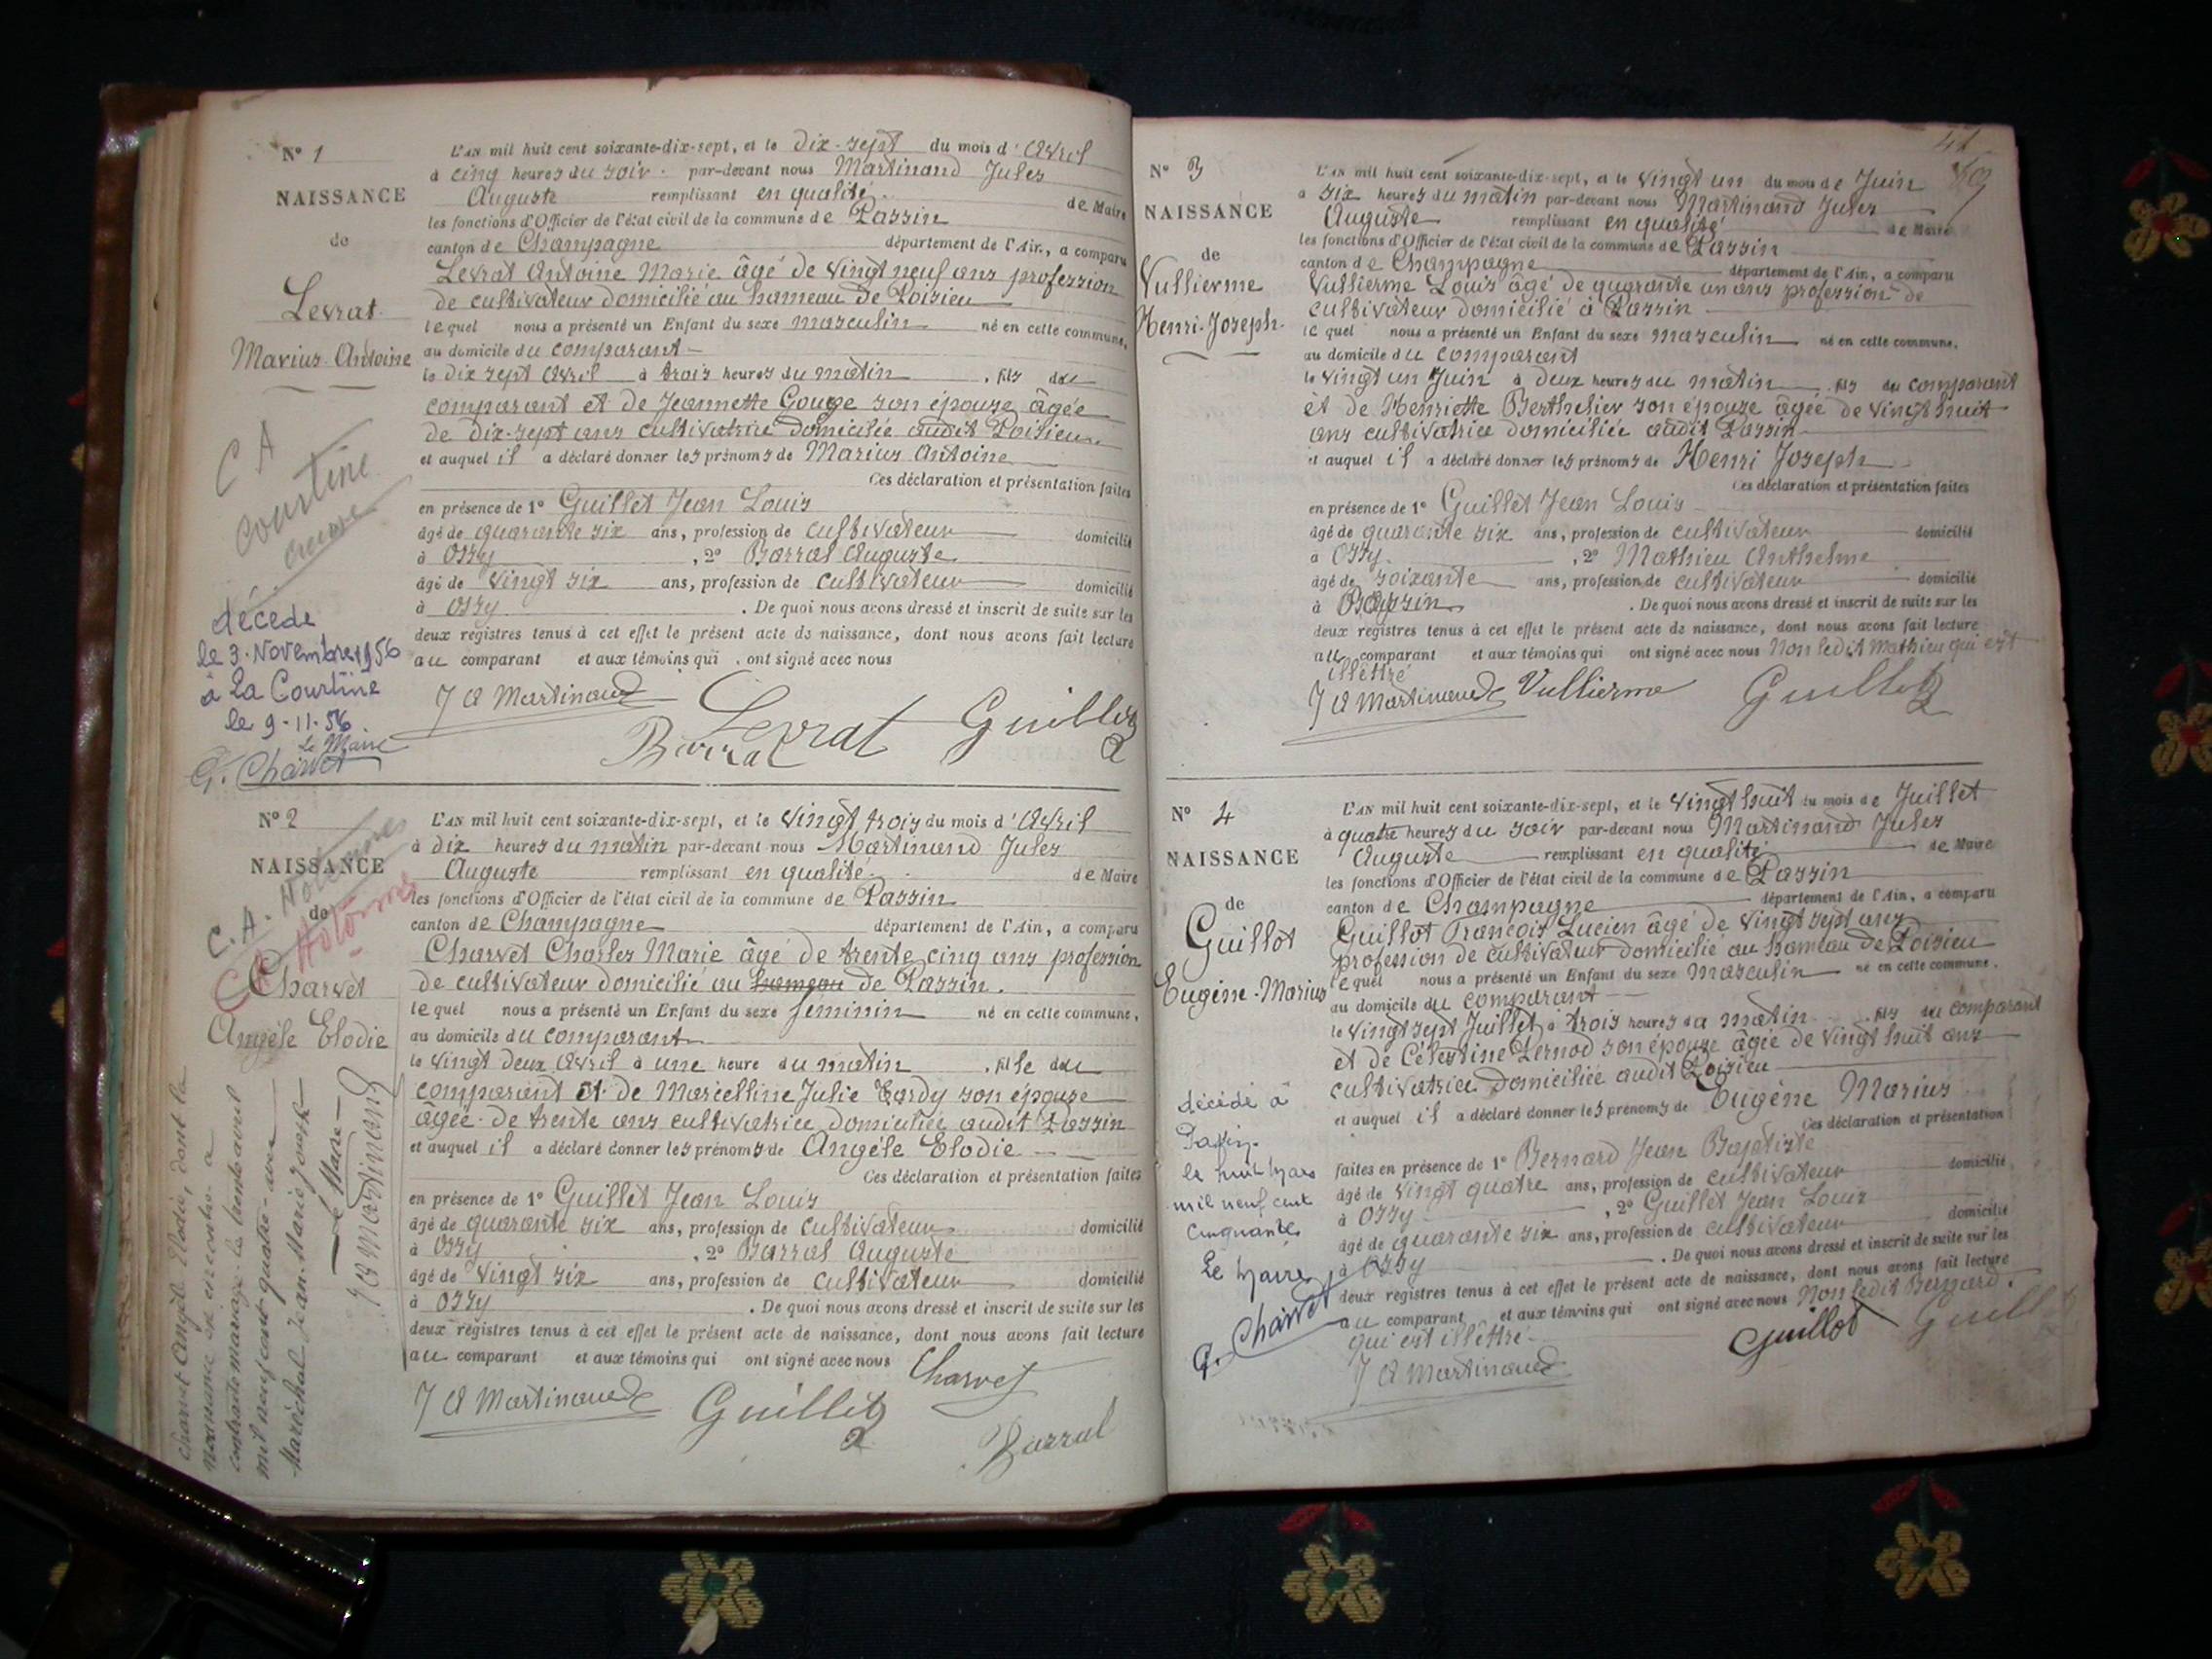 N° 1
NAISSANCE
de
Levrat
Marius Antoine
C A
Courtine
Creuse
décédé
le 3 Novembre 1956
à La Courtine
le 9-11-56
le Maire
G. Charvet
L'AN mil huit cent soixante-dix-sept, et le dix-sept du mois d'Avril
à cinq heures du soir par-devant nous Martinand Jules
Auguste remplissant en qualité de Maire
les fonctions d'Officier de l'état civil de la commune de Passin
canton de Champagne département de l'Ain, a comparu
Levrat Antoine Marie âgé de vingt neuf ans profession
de cultivateur domicilié au hameau de Poisieu
lequel nous a présenté un Enfant du sexe masculin né en cette commune,
au domicile du comparant
le dix sept Avril à trois heures du matin, fils du
comparant et de Jeannette Gouge son épouse âgée
de dix-sept ans cultivatrice domiciliée audit Poisieu
et auquel il a déclaré donner les prénoms de Marius Antoine
Ces déclaration et présentation faites
en présence de 1° Guillet Jean Louis
âgé de quarante six ans, profession de cultivateur domicilié
à Ossy, 2° Barral Auguste
âgé de vingt six ans, profession de cultivateur domicilié
à Ossy. De quoi nous avons dressé et inscrit de suite sur les
deux registres tenus à cet effet le présent acte de naissance, dont nous avons fait lecture
au comparant et aux témoins qui ont signé avec nous
J A Martinand Levrat Guillet
Barral
N° 2
NAISSANCE
de
C. A. Hotonnes
CA Hotonnes
Charvet
Angèle Elodie
Charvet Angèle Elodie, dont la
naissance ci-contre a
contracté mariage le trente avril
mil neuf cent quatre avec
Maréchal Jean-Marie Joseph
Le Maire
J A Martinand
L'AN mil huit cent soixante-dix-sept, et le vingt trois du mois d'Avril
à dix heures du matin par-devant nous Martinand Jules
Auguste remplissant en qualité de Maire
les fonctions d'Officier de l'état civil de la commune de Passin
canton de Champagne département de l'Ain, a comparu
Charvet Charles Marie âgé de trente cinq ans profession
de cultivateur domicilié au hameau de Passin.
lequel nous a présenté un Enfant du sexe féminin né en cette commune,
au domicile du comparant
le vingt deux Avril à une heure du matin, fille du
comparant et de Marcelline Julie Tardy son épouse
âgée de trente ans cultivatrice domiciliée audit Passin
et auquel il a déclaré donner les prénoms de Angèle Elodie
Ces déclaration et présentation faites
en présence de 1° Guillet Jean Louis
âgé de quarante six ans, profession de cultivateur domicilié
à Ossy, 2° Barral Auguste
âgé de vingt six ans, profession de cultivateur domicilié
à Ossy. De quoi nous avons dressé et inscrit de suite sur les
deux registres tenus à cet effet le présent acte de naissance, dont nous avons fait lecture
au comparant et aux témoins qui ont signé avec nous
Charvet
J A Martinand Guillet
Barral
41
N° 3
NAISSANCE
de
Vullierme
Henri-Joseph
L'AN mil huit cent soixante-dix-sept, et le vingt un du mois de Juin
à six heures du matin par-devant nous Martinand Jules
Auguste remplissant en qualité de Maire
les fonctions d'Officier de l'état civil de la commune de Passin
canton de Champagne département de l'Ain, a comparu
Vullierme Louis âgé de quarante un ans profession de
cultivateur domicilié à Passin
lequel nous a présenté un Enfant du sexe masculin né en cette commune,
au domicile du comparant
le vingt un Juin à deux heures du matin, fils du comparant
et de Henriette Berthelier son épouse âgée de vingt huit
ans cultivatrice domiciliée audit Passin
et auquel il a déclaré donner les prénoms de Henri Joseph
Ces déclaration et présentation faites
en présence de 1° Guillet Jean Louis
âgé de quarante six ans, profession de cultivateur domicilié
à Ossy, 2° Mathieu Anthelme
âgé de soixante ans, profession de cultivateur domicilié
à Passin. De quoi nous avons dressé et inscrit de suite sur les
deux registres tenus à cet effet le présent acte de naissance, dont nous avons fait lecture
au comparant et aux témoins qui ont signé avec nous Non ledit Mathieu qui est
illettré
J A Martinand Vullierme Guillet
N° 4
NAISSANCE
de
Guillot
Eugène-Marius
décédé à
Passin
le huit Mars
mil neuf cent
cinquante
Le Maire
G. Charvet
L'AN mil huit cent soixante-dix-sept, et le vingt huit du mois de Juillet
à quatre heures du soir par-devant nous Martinand Jules
Auguste remplissant en qualité de Maire
les fonctions d'Officier de l'état civil de la commune de Passin
canton de Champagne département de l'Ain, a comparu
Guillot François Lucien âgé de vingt sept ans
profession de cultivateur domicilié au hameau de Poisieu
lequel nous a présenté un Enfant du sexe masculin né en cette commune,
au domicile du comparant
le vingt sept Juillet à trois heures du matin, fils du comparant
et de Célestine Pernod son épouse âgée de vingt huit ans
cultivatrice domiciliée audit Poisieu
et auquel il a déclaré donner les prénoms de Eugène Marius
Ces déclaration et présentation
faites en présence de 1° Bernard Jean Baptiste
âgé de vingt quatre ans, profession de cultivateur domicilié
à Ossy, 2° Guillet Jean Louis
âgé de quarante six ans, profession de cultivateur domicilié
à Ossy. De quoi nous avons dressé et inscrit de suite sur les
deux registres tenus à cet effet le présent acte de naissance, dont nous avons fait lecture
au comparant et aux témoins qui ont signé avec nous Non ledit Bernard
qui est illettré
Guillot Guillet
J A Martinand